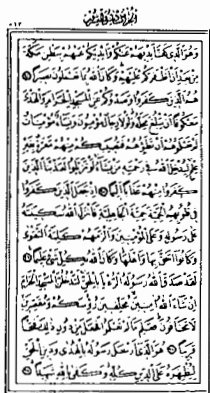 وَهُوَ الَّذِي كَفَّ أَيْدِيَهُمْ عَنكُمْ وَأَيْدِيَكُمْ عَنْهُم بِبَطْنِ مَكَّةَ
مِن بَعْدِ أَنْ أَظْفَرَكُمْ عَلَيْهِمْ وَكَانَ اللَّهُ بِمَا تَعْمَلُونَ بَصِيرًا
هُمُ الَّذِينَ كَفَرُوا وَصَدُّوكُمْ عَنِ الْمَسْجِدِ الْحَرَامِ وَالْهَدْيَ
مَعْكُوفًا أَن يَبْلُغَ مَحِلَّهُ وَلَوْلَا رِجَالٌ مُّؤْمِنُونَ وَنِسَاءٌ مُّؤْمِنَاتٌ
لَّمْ تَعْلَمُوهُمْ أَن تَطَئُوهُمْ فَتُصِيبَكُم مِّنْهُم مَّعَرَّةٌ بِغَيْرِ
عِلْمٍ لِّيُدْخِلَ اللَّهُ فِي رَحْمَتِهِ مَن يَشَاءُ لَوْ تَزَيَّلُوا لَعَذَّبْنَا الَّذِينَ
كَفَرُوا مِنْهُمْ عَذَابًا أَلِيمًا إِذْ جَعَلَ الَّذِينَ كَفَرُوا
فِي قُلُوبِهِمُ الْحَمِيَّةَ حَمِيَّةَ الْجَاهِلِيَّةِ فَأَنزَلَ اللَّهُ سَكِينَتَهُ
عَلَى رَسُولِهِ وَعَلَى الْمُؤْمِنِينَ وَأَلْزَمَهُمْ كَلِمَةَ التَّقْوَى
وَكَانُوا أَحَقَّ بِهَا وَأَهْلَهَا وَكَانَ اللَّهُ بِكُلِّ شَيْءٍ عَلِيمًا
لَّقَدْ صَدَقَ اللَّهُ رَسُولَهُ الرُّءْيَا بِالْحَقِّ لَتَدْخُلُنَّ الْمَسْجِدَ الْحَرَامَ
إِن شَاءَ اللَّهُ آمِنِينَ مُحَلِّقِينَ رُءُوسَكُمْ وَمُقَصِّرِينَ
لَا تَخَافُونَ فَعَلِمَ مَا لَمْ تَعْلَمُوا فَجَعَلَ مِن دُونِ ذَلِكَ فَتْحًا
قَرِيبًا هُوَ الَّذِي أَرْسَلَ رَسُولَهُ بِالْهُدَى وَدِينِ الْحَقِّ
لِيُظْهِرَهُ عَلَى الدِّينِ كُلِّهِ وَكَفَى بِاللَّهِ شَهِيدًا